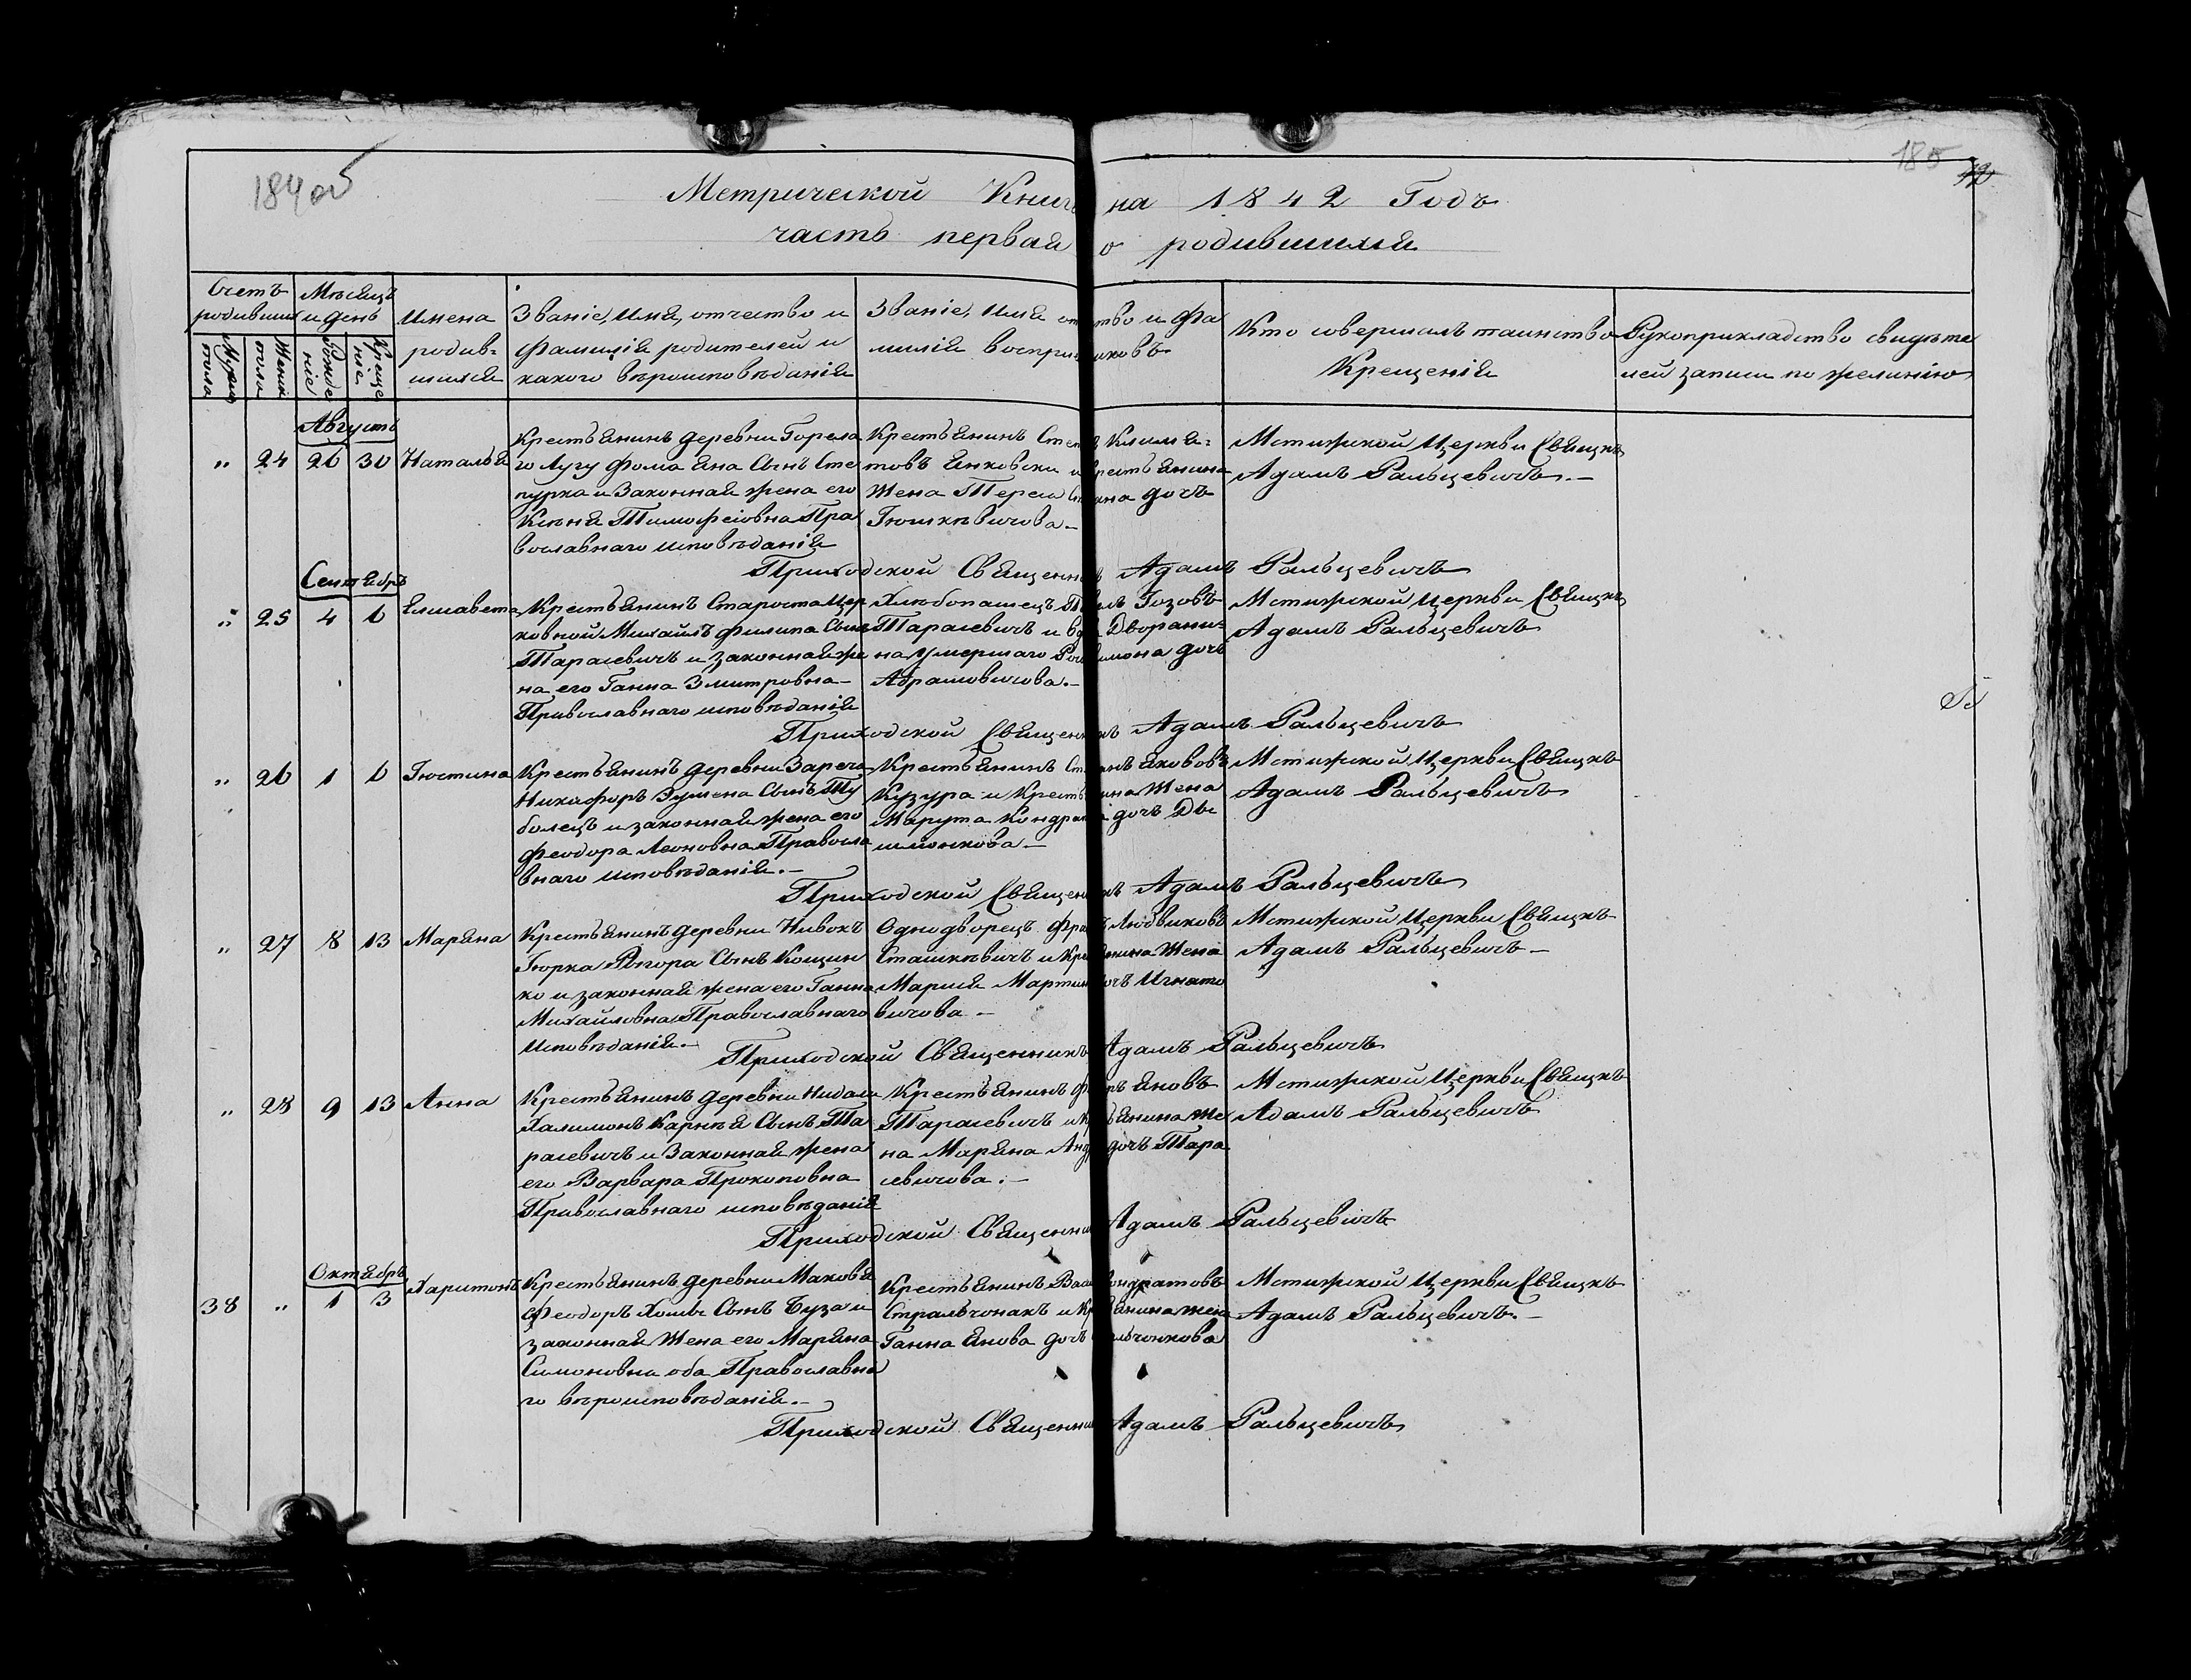 184 об
185
42
Метрической Книги на 1842 Годъ
часть первая о родившихся
Счетъ родивших
Мужеска пола
Женск пола
Мѣсяцъ и день
Рожде ніе
Креще ніе
Имена родив= шихся
Званіе, Имя, отчество и
фамилія родителей и
какого вѣроисповѣданія
Званіе, Имя отчество и фа
милія воспріемниковъ
Кто совершалъ таинство
Крещенія
Рукоприкладство свидѣте
лей записи по желанію
Августъ
„ 24 26 30 Наталья
Крестьянинъ деревни Горела
го Лугу Фома Яна Сынъ Сте
пурка и Законная жена его
Ксеня Тимофеіовна Пра
вославнаго исповѣданія
Крестьянинъ Клима=
товъ Янковски и Крестьянина
Жена Тереса дочь
Гюшкѣвичова.–
Мстижской Церкви Свящкъ
Адамъ Ральцевичъ.–
Приходской Священникъ Адамъ Ральцевичъ
Сентябрь
„ 25 4 6 Елисавета
Крестьянинъ Староста Цер
ковной Михаилъ Филипа Сынъ
Тарасевичъ и законная же
на его Ганна Змитровна–
Православнаго исповѣданія
Хлѣбопашецъ Гозовъ
Тарасевичъ и Дворяни=
на умершаго дочь
Абрамовичова.–
Мстижской Церкви Свящкъ
Адамъ Ральцевичъ
Приходской Священникъ Адамъ Ральцевичъ
„ 26 1 6 Гюстина
Крестьянинъ деревни Заречя
Никифоръ Зумена Сынъ Ту
болецъ и законная жена его
Феодора Леоновна Правосла
внаго исповѣданія.–
Крестьянинъ Яковов
Кузура и Крестьянина Жена
Марута Кондрата дочь Ды
шлюнкова–
Мстижской Церкви Свящкъ
Адамъ Ральцевичъ
Приходской Священникъ Адамъ Ральцевичъ
„ 27 8 13 Марьяна
Крестьянинъ деревни Нивокъ
Гюрка Рыгора Сынъ Кощин
ко и законная жена его Ганна
Михайловна Православнаго
Исповѣданія.–
Однодворецъ Людвиковъ
Сташкѣвичъ и Крестьянина Жена
Марыя Мартина дочь Игнато
вичова–
Мстижской Церкви Свящкъ
Адамъ Ральцевичъ–
Приходской Священникъ Адамъ Ральцевичъ
„ 28 9 13 Анна
Крестьянинъ деревни Нидали
Халимонъ Карнѣя Сынъ Та
расевичъ и Законная жена
его Варвара Прокоповна
Православнаго исповѣданія
Крестьянинъ Яновъ
Тарасевичъ и Крестьянина Же
на Марьяна дочь Тара
севичова.–
Мстижской Церкви Свящкъ
Адамъ Ральцевичъ
Приходской Священникъ Адамъ Ральцевичъ
Октябрь
38 „ 1 3 Харитонъ
Крестьянинъ деревни Маковя
Феодоръ Хомы Сынъ Буза и
законная Жена его Марьяна
Симоновна оба Православна
го вѣроисповѣданія.–
Крестьянинъ Кондратовъ
Стральчонакъ и Крестьянина жена
Ганна Янова дочь
Мстижской Церкви Свящкъ
Адамъ Ральцевичъ.–
Приходской Священникъ Адамъ Ральцевичъ